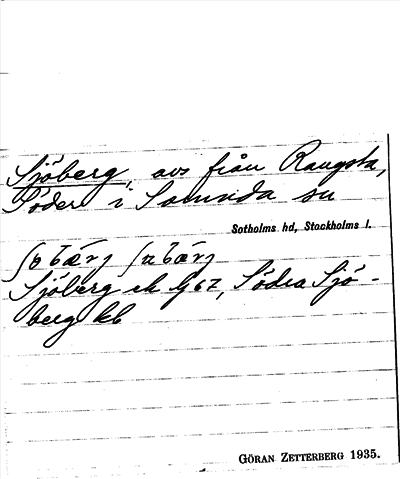 Sjöberg, avs från Rangsta,
Söder i Sorunda sn
Sotholms hd, Stockholms l.
Sjöberg ek G 67, Södra Sjö-
berg kb
GÖRAN ZETTERBERG 1935.